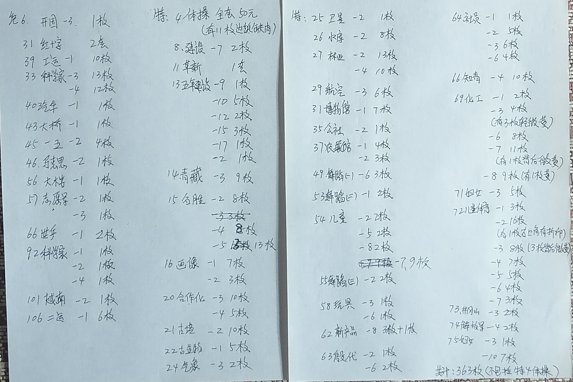 纪6. 开国 -3 1枚
31 红十字 2套
39 工运 -1 10枚
33 科学家 -3 13枚
-4 12枚
40 汽车 -1 1枚
43 大桥 -1 1枚
45 一五 -2 4枚
46 马克思 -2 1枚
56 大炼 -1 1枚
57 志愿军 -2 1枚
-3 1枚
66 世乒 -1 2枚
92 科学家 -1 1枚
-2 1枚
-4 1枚
101 越南 -2 1枚
106 二运 -1 6枚
特: 4 体操 全套50元
8. 建设 -7 2枚
11 革新 1套
13 五年建设 -9 1枚
-10 5枚
-12 2枚
-15 3枚
-17 1枚
-2 1枚
14 青藏 -3 9枚
15 名胜 -2 8枚
-3 3枚
-4 8枚
-5 13枚
16 画像 -1 7枚
-2 3枚
20 合作化 -3 10枚
-4 5枚
21 古塔 -2 10枚
22 古生物 -1 5枚
24 气象 -3 2枚
特: 25 卫星 -2 1枚
26 水库 -2 8枚
27 林业 -2 13枚
-4 10枚
29 航空 -3 6枚
31 -1 7枚
35 公社 -2 1枚
37 农展馆 -1 4枚
-2 3枚
49 舞蹈(一) -3 6枚
53 舞蹈(二) -1 2枚
54 儿童 -2 2枚
-5 2枚
-8 2枚
-7,9枚
55 舞蹈(三) -2 2枚
58 玩具 -3 1枚
-6 1枚
62 新产品 -8 3枚+1枚
63 殷代 -2 1枚
-6 2枚
64 -1 1枚
-2 5枚
-3 6枚
-6 4枚
66 知青 -4 10枚
69 化工 -1 2枚
-3 4枚
-6 8枚
-7 11枚
-8 9枚(有1枚)
71 妇女 -3 5枚
72 -1 3枚
-2 16枚
-4 2枚
-5 5枚
-6 4枚
-7 3枚
73. 井冈山 -3 2枚
74 解放军 -4 2枚
75 -3 1枚
-10 7枚
共计: 363枚 (不包括特4体操)